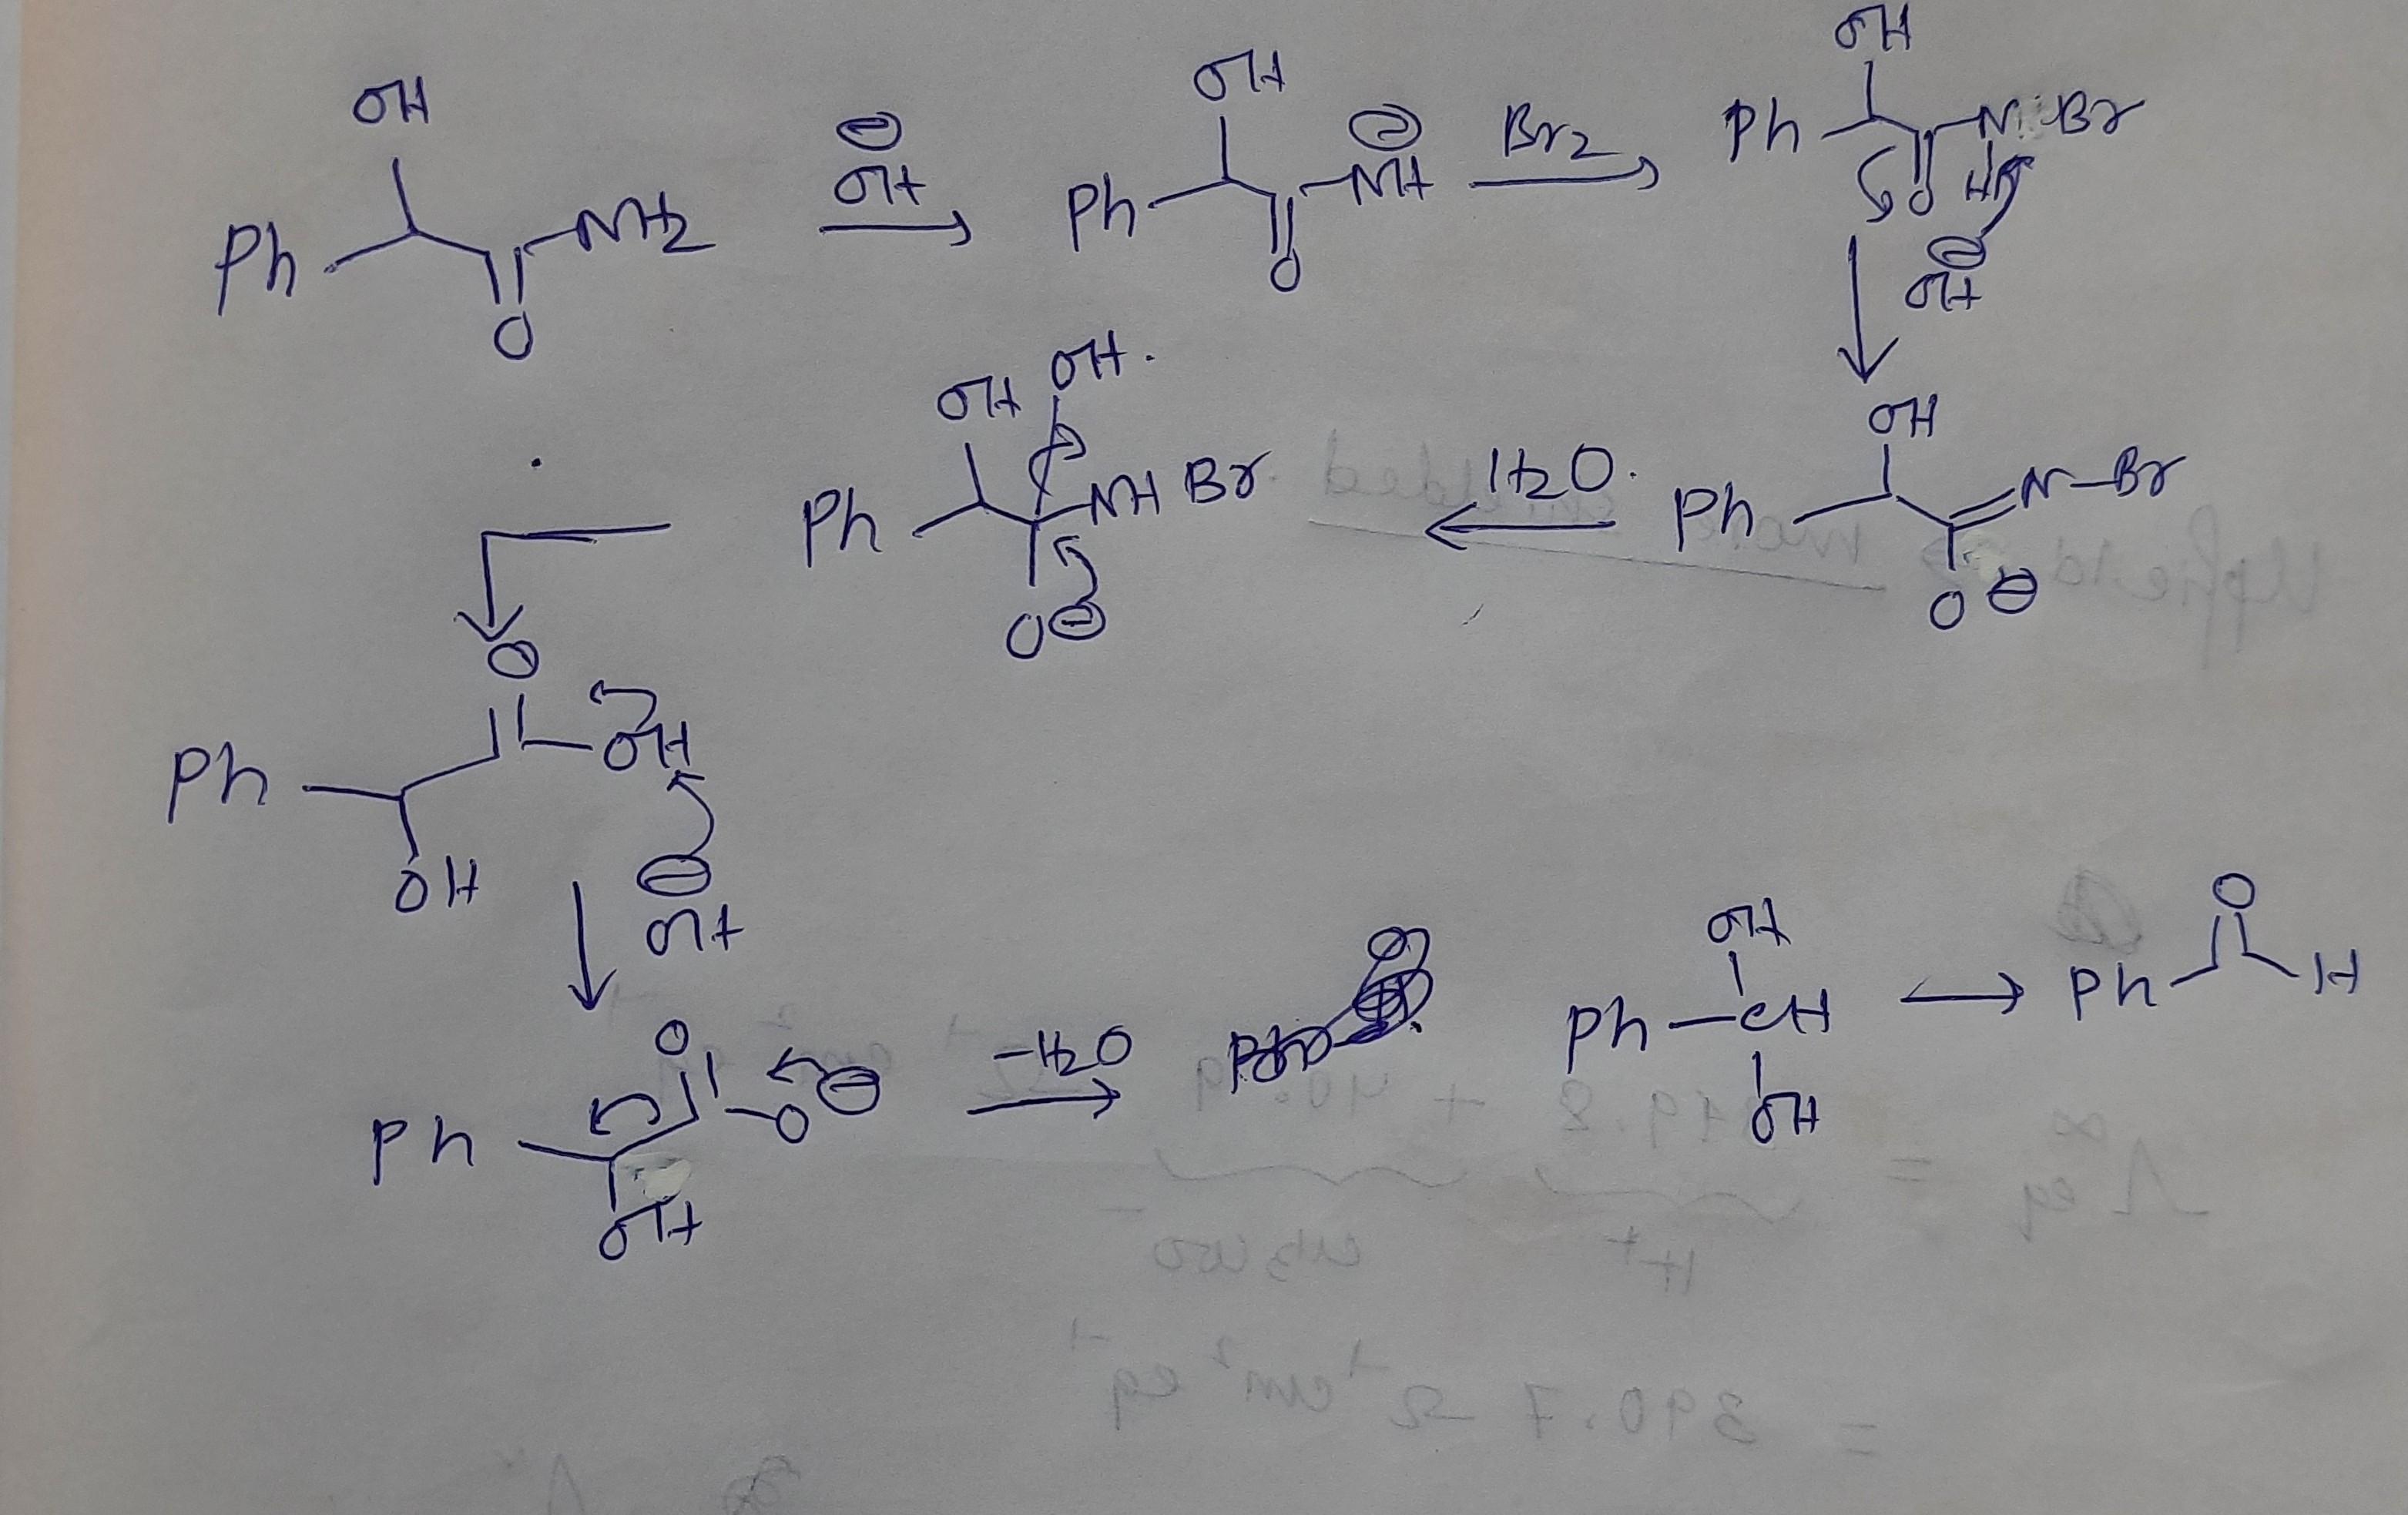 OH
Ph NH2 O
⊖ OH
OH
Ph NH ⊖ O
Br2
OH
Ph N Br H O
⊖ OH
OH
Ph N-Br
O ⊖
H2O.
OH OH.
Ph NH Br
O ⊖
O
Ph OH
OH
⊖
OH
O
Ph O ⊖
OH
-H2O
OH
Ph-CH
OH
O
Ph H